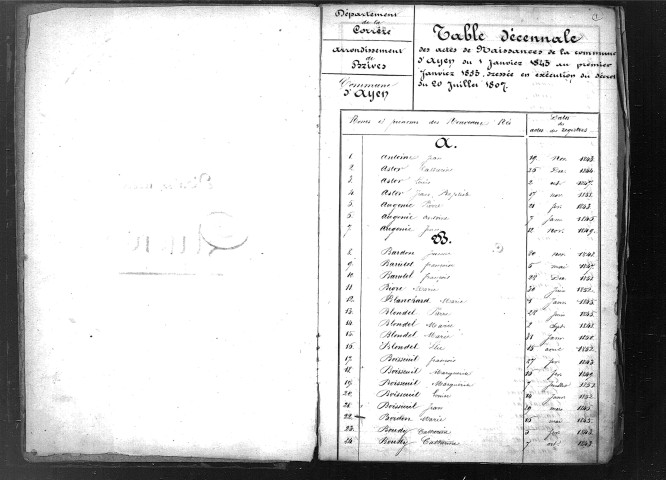 Département
de la
Corrèze
Arrondissement
de
Brives
Commune
d'Ayen
1
Table Décennale
des actes de Naissances de la commune
d'Ayen du 1 Janvier 1843 au premier
Janvier 1853, dressée en exécution du décret
du 20 Juillet 1807.
Noms et prénoms des Nouveaux Nés
Dates
des
actes des registres
A.
1. Antoine Jean 19 Nov. 1843
2. Astor Catherine 25 Dec 1844
3. Astor Louis 2 oct. 1847
4. Astor Jean Baptiste 17 nov 1852
5. Augenie Pierre 21 fev. 1843
6. Augenie Antoine 7 janv 1845
7. Augenie 12 Nov. 1849
B.
8. Bardon 20 1842
9. Barutel françoise 5 mai 1847
10. Barutel françois 22 Dec 1852
11. Biore Marie 30 Juin 1852
12. Blanchard Marie 1 Janv 1845
13. Blondel Pierre 28 Juin 1845
14. Blondel Marie 2 Sept. 1848
15. Blondel Marie 31 Janv 1850
16. Blondel 18 avril 1852
17. Boisseuil françois 27 1843
18. Boisseuil Marguerite 15 fev 1849
19. Boisseuil Marguerite 7 Juillet 1852
20. Boisseuil Louise 14 Janv 1852
21. Boisseuil Jean 20 mars 1845
22. Bordon Marie 15 mai 1843
23. Boudy Catherine 5 1843
24. Boudy Catherine 7 oct. 1843